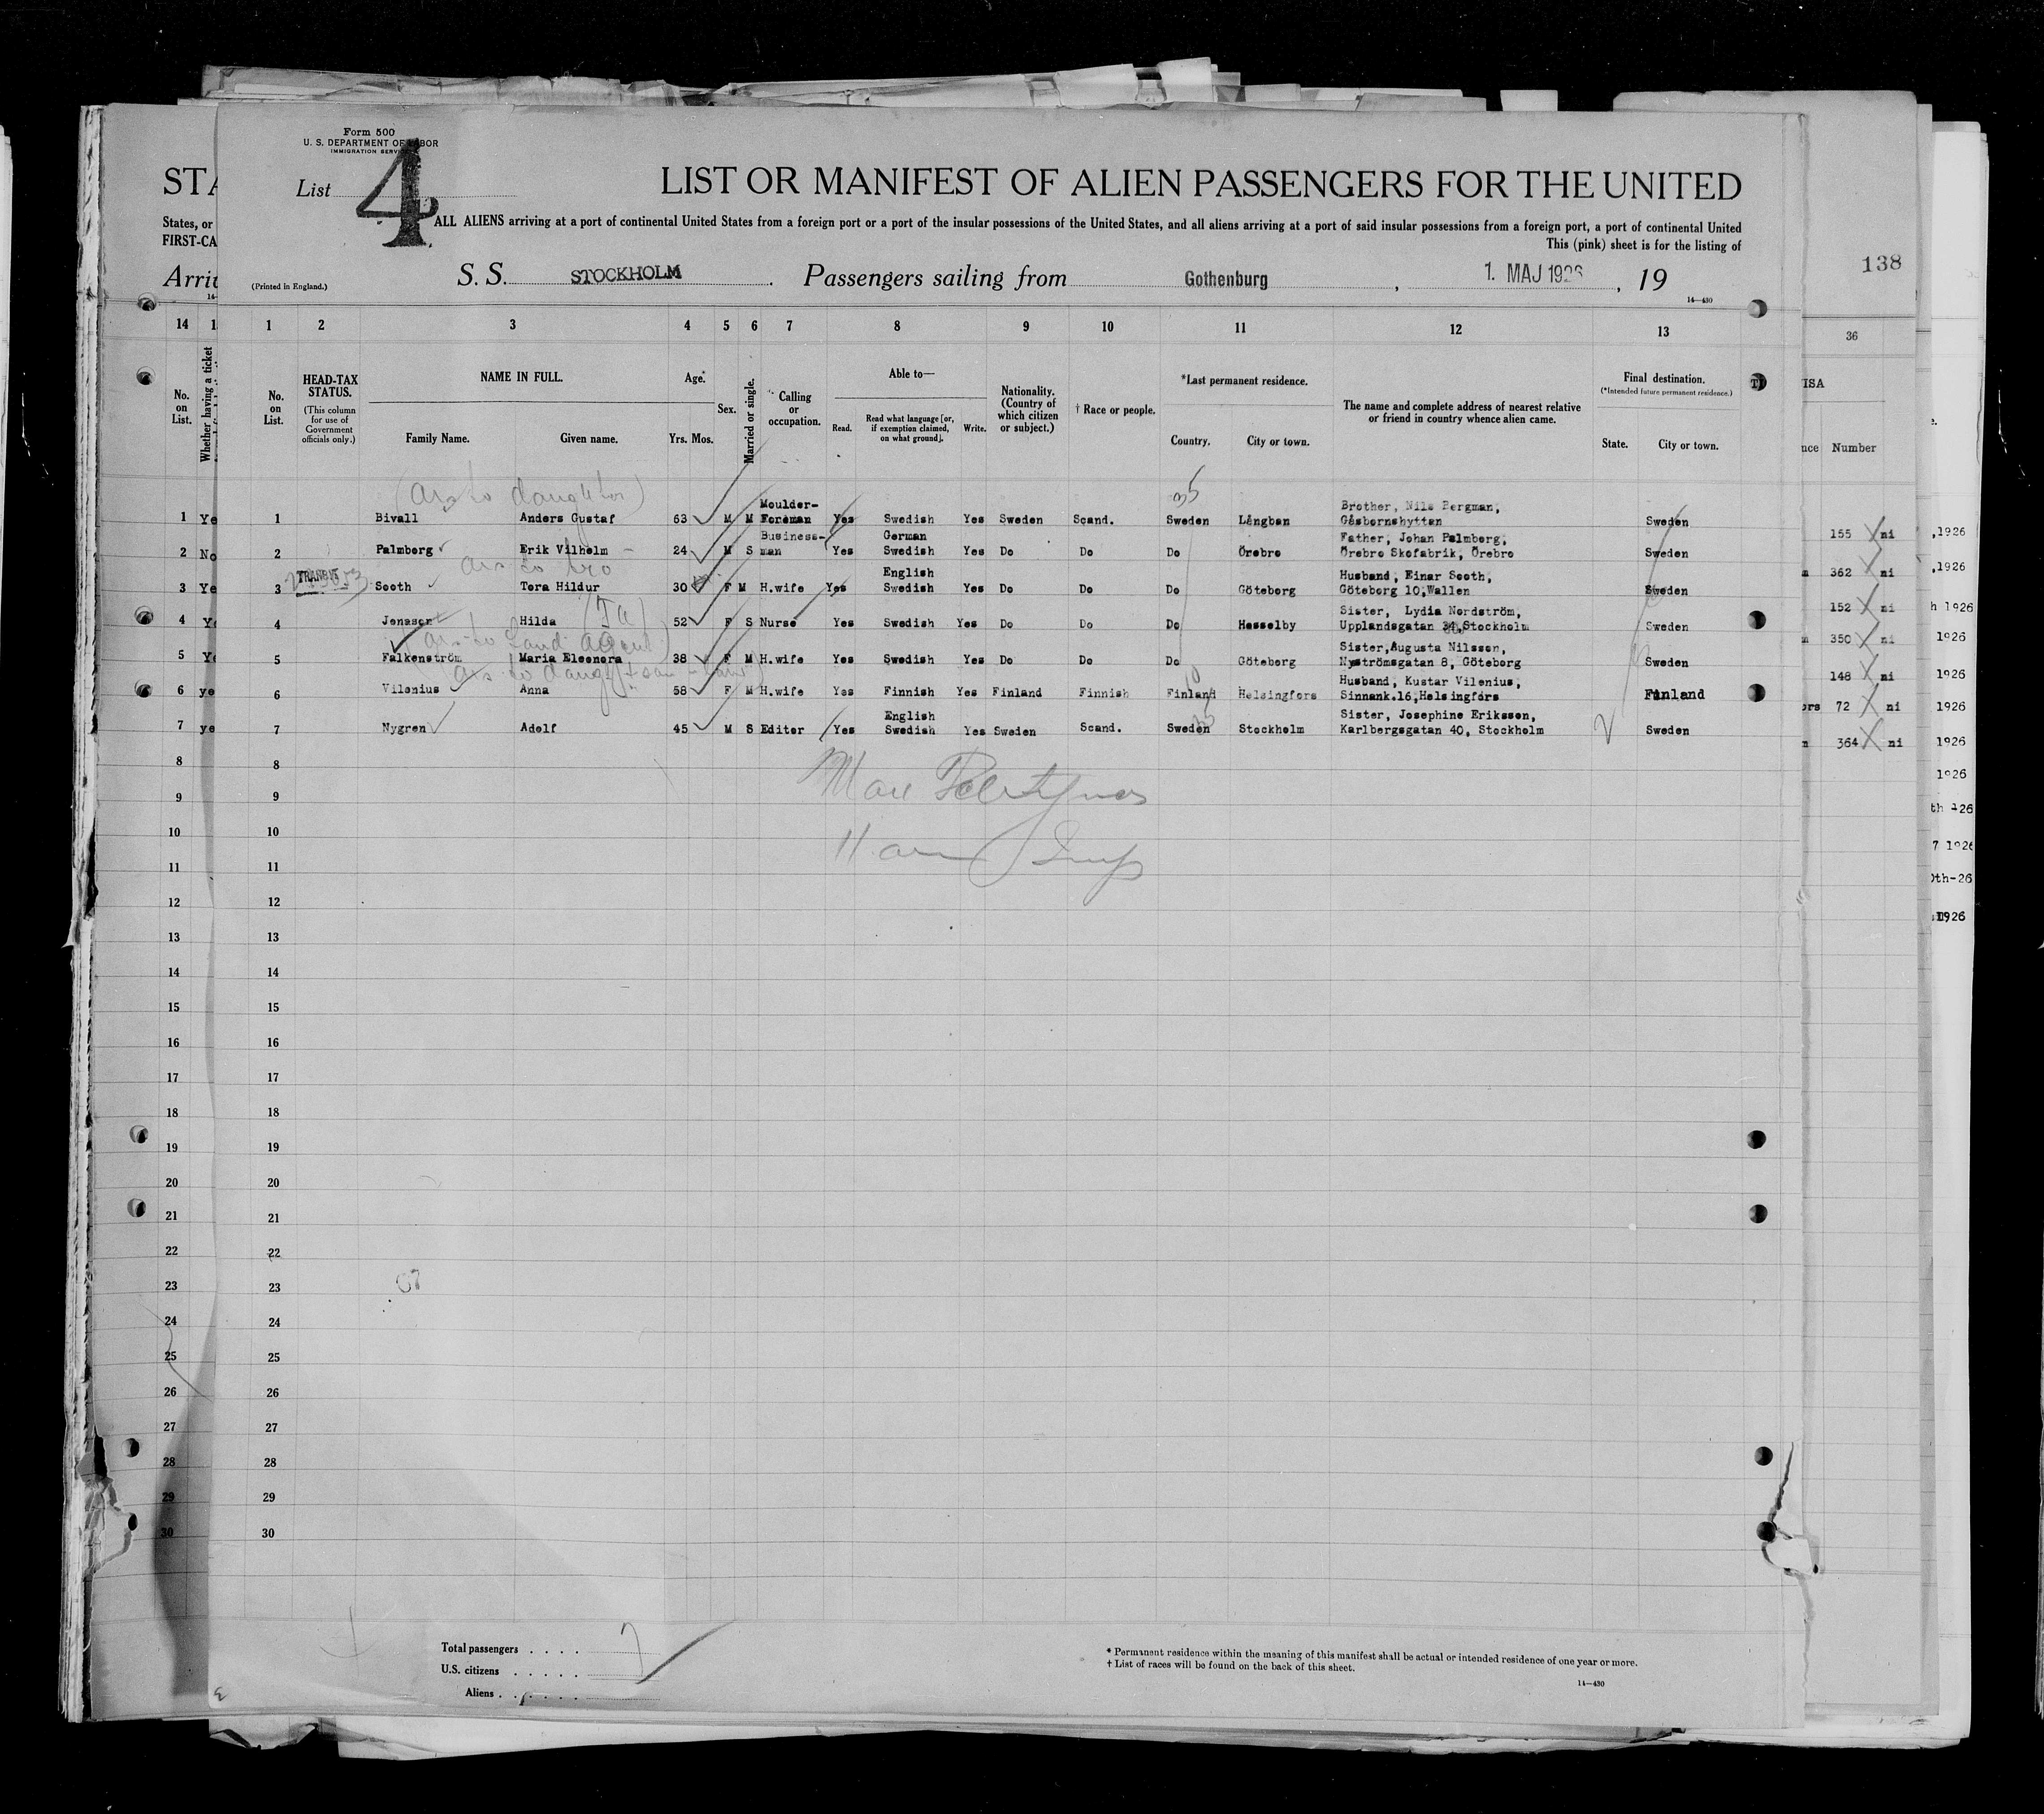 Form 500
U. S. DEPARTMENT OF LABOR
IMMIGRATION SERVICE
List 4
LIST OR MANIFEST OF ALIEN PASSENGERS FOR THE UNITED
STA
States, or
FIRST-CA
ALL ALIENS arriving at a port of continental United States from a foreign port or a port of the insular possessions of the United States, and all aliens arriving at a port of said insular possessions from a foreign port, a port of continental United
This (pink) sheet is for the listing of
138
(Printed in England.)
S. S. STOCKHOLM. Passengers sailing from Gothenburg, 1. MAJ 1926, 19
14—430
14 1 2 3 4 5 6 7 8 9 10 11 12 13 36
No. on List.
Whether having a ticket
No. on List.
HEAD-TAX STATUS.
(This column for use of Government officials only.)
NAME IN FULL.
Family Name. Given name.
Age.
Yrs. Mos.
Sex.
Married or single.
Calling or occupation.
Able to—
Read. Read what language [or, if exemption claimed, on what ground]. Write.
Nationality. (Country of which citizen or subject.)
† Race or people.
*Last permanent residence.
Country. City or town.
The name and complete address of nearest relative or friend in country whence alien came.
Final destination.
(*Intended future permanent residence.)
State. City or town.
VISA
Number
35
Moulder- Brother, Nils Bergman,
1 Ye 1 Bivall Anders Gustaf 63 M M Foreman Yes Swedish Yes Sweden Scand. Sweden Långban Gåsbornshyttan Sweden 155 ni ,1926
Business- German Father, Johan Palmberg,
2 No 2 Palmberg Erik Vilhelm 24 M S man Yes Swedish Yes Do Do Do Örebro Örebro Skofabrik, Örebro Sweden 362 ni ,1926
TRANSIT English Husband, Einar Sooth,
3 Ye 3 Sooth Tora Hildur 30 F M H.wife Yes Swedish Yes Do Do Do Göteborg Göteborg 10,Wallen Sweden 152 ni h 1926
Sister, Lydia Nordström,
4 Ye 4 Jonason Hilda 52 F S Nurse Yes Swedish Yes Do Do Do Hasselby Upplandsgatan 34,Stockholm Sweden 350 ni 1926
Sister,Augusta Nilsson,
5 Ye 5 Falkenström Maria Eleonora 38 F M H.wife Yes Swedish Yes Do Do Do Göteborg Nyströmsgatan 8, Göteborg Sweden 148 ni 1926
10 Husband, Kustar Vilenius,
6 ye 6 Vilenius Anna 58 F M H.wife Yes Finnish Yes Finland Finnish Finland Helsingfors Sinnank.16,Helsingfors Finland 72 ni 1926
English 35 Sister, Josephine Eriksson,
7 ye 7 Nygren Adolf 45 M S Editor Yes Swedish Yes Sweden Scand. Sweden Stockholm Karlbergsgatan 40, Stockholm Sweden 364 ni 1926
8 8 1926
9 9
10 10
11 11
12 12 1926
13 13
14 14
15 15
16 16
17 17
18 18
19 19
20 20
21 21
22 22
23 23
24 24
25 25
26 26
27 27
28 28
29 29
30 30
Total passengers . . . . 7
U.S. citizens . . . . .
Aliens . . . . . .
* Permanent residence within the meaning of this manifest shall be actual or intended residence of one year or more.
† List of races will be found on the back of this sheet.
14—430